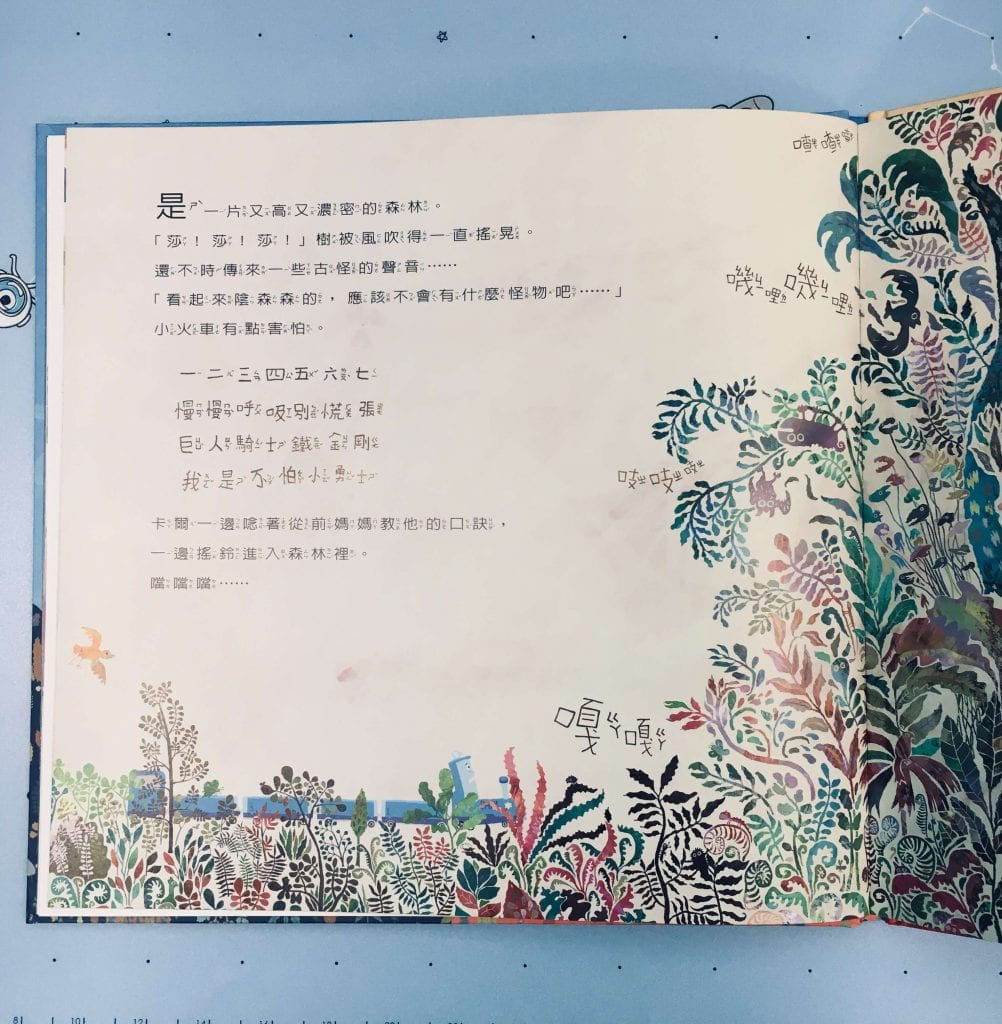 是一片又高又濃密的森林。
「莎！莎！莎！」樹被風吹得一直搖晃。
還不時傳來一些古怪的聲音⋯⋯
「看起來陰森森的，應該不會有什麼怪物吧⋯⋯」
小火車有點害怕。
一二三四五六七
慢慢呼吸別慌張
巨人騎士鐵金剛
我是不怕小勇士
卡爾一邊唸著從前媽媽教他的口訣，
一邊搖鈴進入森林裡。
噹噹噹⋯⋯
喳喳喳
嘰哩嘰哩
吱吱吱
嘎ㄍㄚ嘎ㄍㄚ
8 10 12 14 16 18 20 22